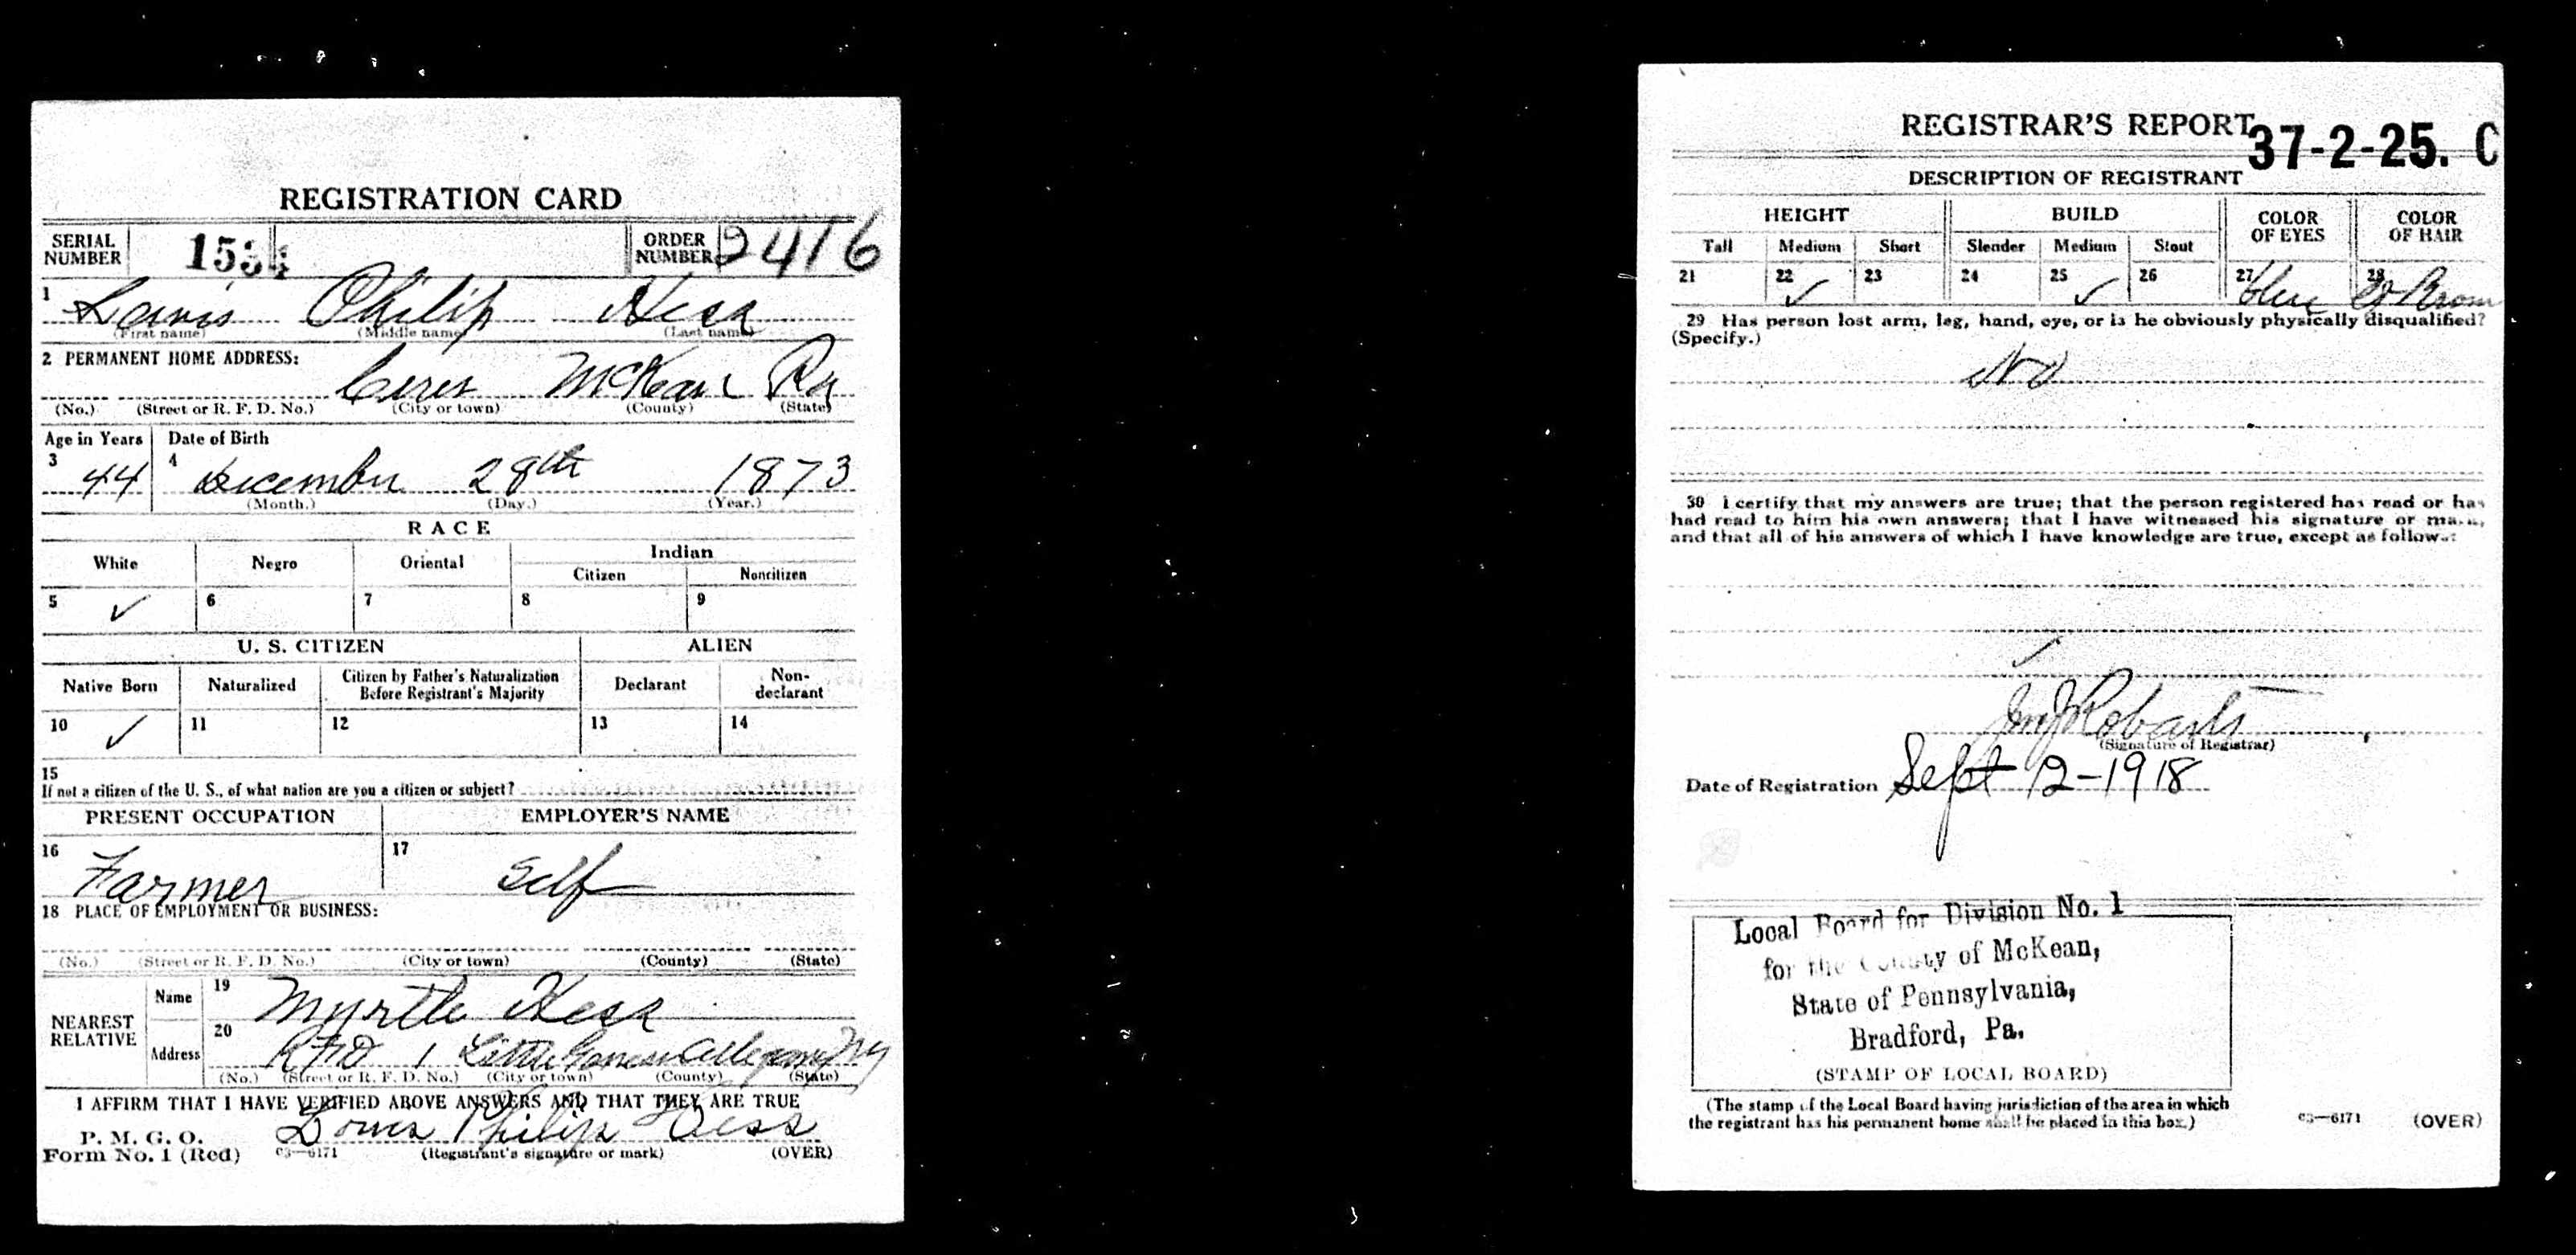 REGISTRATION CARD
SERIAL NUMBER 1534 ORDER NUMBER 2416
1 Lewis Philip Hess
(First name) (Middle name) (Last name)
2 PERMANENT HOME ADDRESS:
Ceres McKean Pa
(No.) (Street or R. F. D. No.) (City or town) (County) (State)
Age in Years Date of Birth
3 44 4 December 28th 1873
(Month.) (Day.) (Year.)
RACE
White Negro Oriental Indian
Citizen Noncitizen
5 ✓ 6 7 8 9
U. S. CITIZEN ALIEN
Native Born Naturalized Citizen by Father's Naturalization Before Registrant's Majority Declarant Non-declarant
10 ✓ 11 12 13 14
15
If not a citizen of the U. S., of what nation are you a citizen or subject?
PRESENT OCCUPATION EMPLOYER'S NAME
16 Farmer 17 Self
18 PLACE OF EMPLOYMENT OR BUSINESS:
(No.) (Street or R. F. D. No.) (City or town) (County) (State)
NEAREST RELATIVE Name 19 Myrtle Hess
Address 20 RFD 1 Little Genesee Allegany NY
(No.) (Street or R. F. D. No.) (City or town) (County) (State)
I AFFIRM THAT I HAVE VERIFIED ABOVE ANSWERS AND THAT THEY ARE TRUE
P. M. G. O.
Form No. 1 (Red) 03—6171 Philip Hess
(Registrant's signature or mark) (OVER)
REGISTRAR'S REPORT
37-2-25. C
DESCRIPTION OF REGISTRANT
HEIGHT BUILD COLOR OF EYES COLOR OF HAIR
Tall Medium Short Slender Medium Stout
21 22 ✓ 23 24 25 ✓ 26 27 blue 28 Brown
29 Has person lost arm, leg, hand, eye, or is he obviously physically disqualified?
(Specify.)
NO
30 I certify that my answers are true; that the person registered has read or has
had read to him his own answers; that I have witnessed his signature or mark,
and that all of his answers of which I have knowledge are true, except as follows:
Roberts
(Signature of Registrar)
Date of Registration Sept 12-1918
Local Board for Division No. 1
for the County of McKean,
State of Pennsylvania,
Bradford, Pa.
(STAMP OF LOCAL BOARD)
(The stamp of the Local Board having jurisdiction of the area in which
the registrant has his permanent home shall be placed in this box.)
03—6171 (OVER)